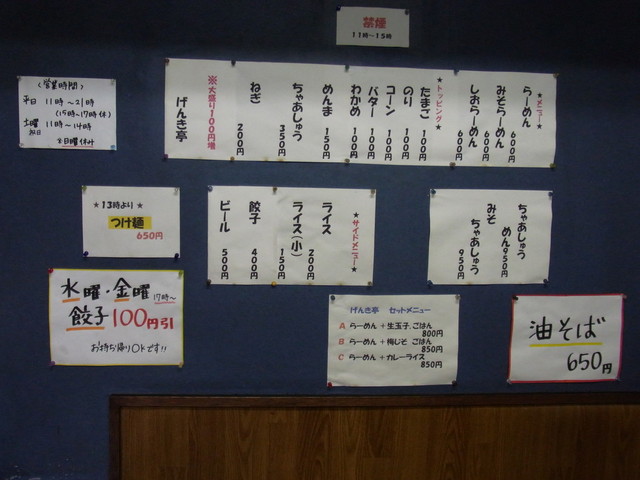 禁煙
11時～15時
（営業時間）
平日 11時～21時
（15時～17時休）
土曜 11時～14時
祝日
※日曜休み
★メニュー★
らーめん 600円
みそらーめん 600円
しおらーめん 600円
★トッピング★
たまご 100円
のり 100円
コーン 100円
バター 100円
わかめ 100円
めんま 150円
ちゃあしゅう 350円
ねぎ 200円
※大盛り100円増
げんき亭
★13時より★
つけ麺
650円
★サイドメニュー★
ライス 200円
ライス（小） 150円
餃子 400円
ビール 500円
ちゃあしゅう
めん950円
みそ
ちゃあしゅう
950円
水曜・金曜 17時～
餃子100円引
お持ち帰りOKです!!
げんき亭 セットメニュー
A らーめん + 生玉子、ごはん
800円
B らーめん + 梅じそ ごはん
850円
C らーめん + カレーライス
850円
油そば
650円